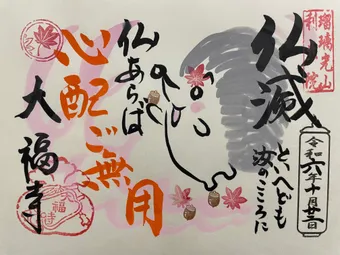 瑠璃光山
利院
仏滅
といへども
汝のこころに
令和六年十月廿二日
仏あらば
心配ご無用
大福寺
福